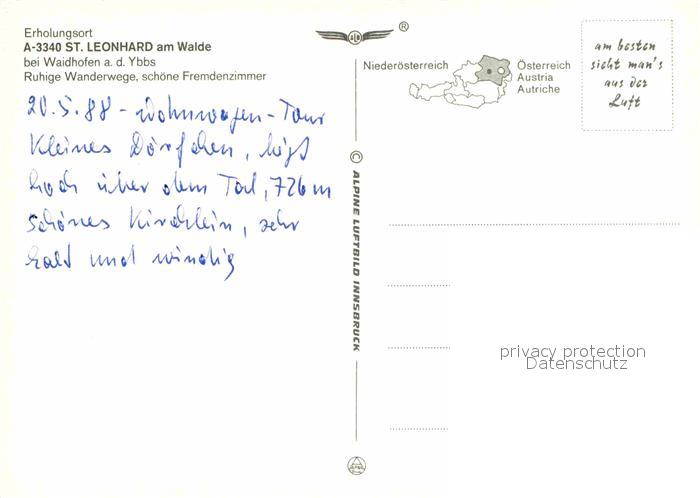 Erholungsort
A-3340 ST. LEONHARD am Walde
bei Waidhofen a. d. Ybbs
Ruhige Wanderwege, schöne Fremdenzimmer
20.5.88 - Wohnwagen-Tour
Kleines Dörfchen, liegt
hoch über dem Tal, 726 m
schönes Kirchlein, sehr
kalt und windig
®
Niederösterreich
Österreich
Austria
Autriche
am besten
sieht man's
aus der
Luft
© ALPINE LUFTBILD INNSBRUCK
privacy protection
Datenschutz